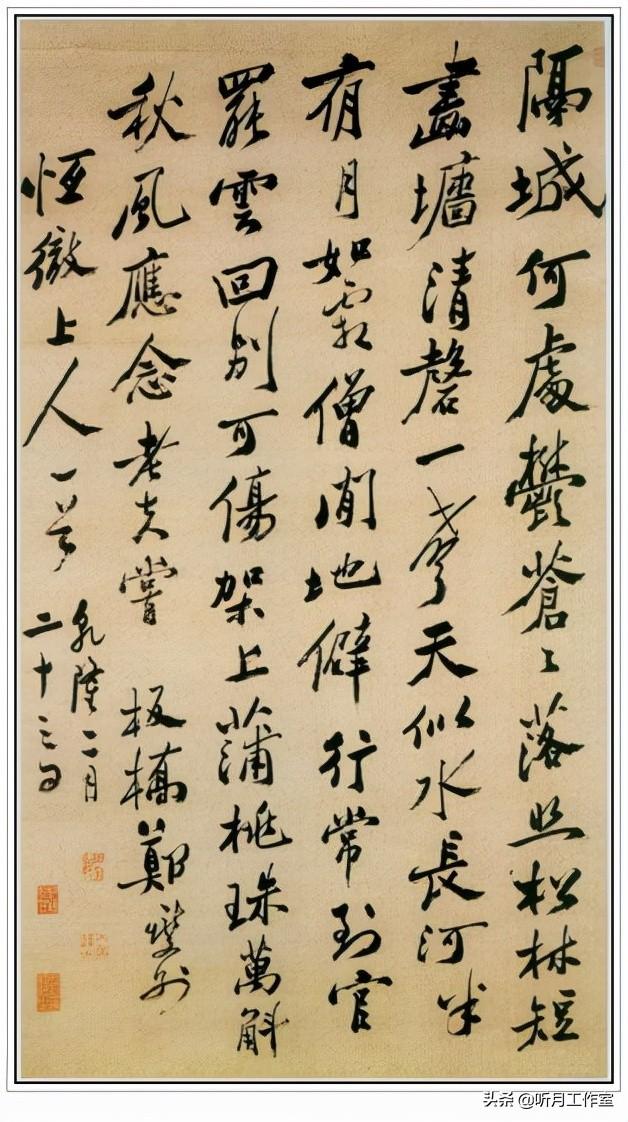 隔城何處鬱蒼〻落照松林短
畫墻清磬一聲天似水長河半
有月如霜僧閒地僻行常到官
罷雲回別可傷架上蒲桃珠萬斛
秋風應念老夫嘗 板橋鄭燮別
恒徹上人一首 乾隆二月
二十三日
头条 @听月工作室